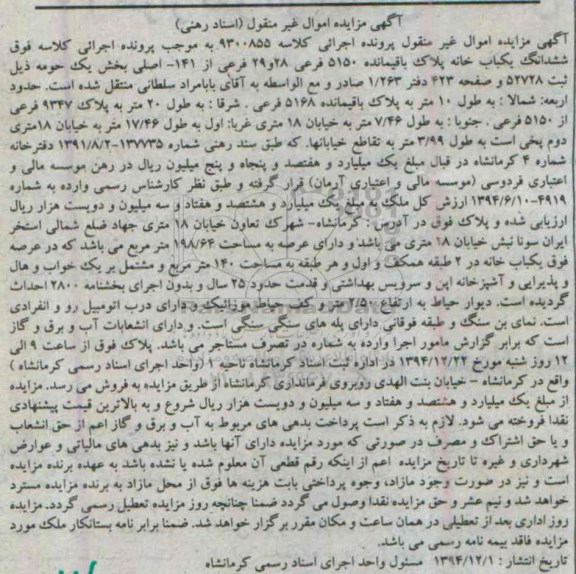 آگهی مزایده اموال غیر منقول (اسناد رهنی)
آگهی مزایده اموال غیر منقول پرونده اجرائی کلاسه ۹۳۰۰۸۵۵ به موجب پرونده اجرائی کلاسه فوق
ششدانگ یکباب خانه پلاک باقیمانده ۵۱۵۰ فرعی ۲۸و۲۹ فرعی از ۱۴۱- اصلی بخش یک حومه ذیل
ثبت ۵۲۷۲۸ و صفحه ۴۲۳ دفتر ۱/۲۶۳ صادر و مع الواسطه به آقای بابامراد سلطانی منتقل شده است. حدود
اربعه: شمالا : به طول ۱۰ متر به پلاک باقیمانده ۵۱۶۸ فرعی . شرقا : به طول ۲۰ متر به پلاک ۹۳۴۷ فرعی
از ۵۱۵۰ فرعی . جنوبا : به طول ۷/۴۶ متر به خیابان ۱۸ متری غربا: اول به طول ۱۷/۴۶ متر به خیابان ۱۸متری
دوم پخی است به طول ۳/۹۹ متر به تقاطع خیابانها. که طبق سند رهنی شماره ۱۳۷۷۳۵-۱۳۹۱/۸/۲ دفترخانه
شماره ۴ کرمانشاه در قبال مبلغ یک میلیارد و هفتصد و پنجاه و پنج میلیون ریال در رهن موسسه مالی و
اعتباری فردوسی (موسسه مالی و اعتباری آرمان) قرار گرفته و طبق نظر کارشناس رسمی وارده به شماره
۴۹۱۹-۱۳۹۴/۶/۱۰ ارزش کل ملک به مبلغ یک میلیارد و هشتصد و هفتاد و سه میلیون و دویست هزار ریال
ارزیابی شده و پلاک فوق در آدرس : کرمانشاه- شهرک تعاون خیابان ۱۸ متری جهاد ضلع شمالی استخر
ایران سونا نبش خیابان ۱۸ متری می باشد و دارای عرصه به مساحت ۱۹۸/۶۴ متر مربع می باشد که در عرصه
فوق یکباب خانه در ۲ طبقه همکف و اول و هر طبقه به مساحت ۱۴۰ متر مربع و مشتمل بر یک خواب و هال
و پذیرایی و آشپزخانه اپن و سرویس بهداشتی و قدمت حدود ۲۵ سال و بدون اجرای بخشنامه ۲۸۰۰ احداث
گردیده است. دیوار حیاط به ارتفاع ۲/۵۰ متر و کف حیاط موزائیک و دارای درب اتومبیل رو و انفرادی
است. نمای بن سنگ و طبقه فوقانی دارای پله های سنگی سنگی است. و دارای انشعابات آب و برق و گاز
است که برابر گزارش مامور اجرا وارده به شماره در تصرف مستاجر می باشد. پلاک فوق از ساعت ۹ الی
۱۲ روز شنبه مورخ ۱۳۹۴/۱۲/۲۲ در اداره ثبت اسناد کرمانشاه ناحیه ۱ (واحد اجرای اسناد رسمی کرمانشاه )
واقع در کرمانشاه - خیابان بنت الهدی روبروی فرمانداری کرمانشاه از طریق مزایده به فروش می رسد. مزایده
از مبلغ یک میلیارد و هشتصد و هفتاد و سه میلیون و دویست هزار ریال شروع و به بالاترین قیمت پیشنهادی
نقدا فروخته می شود. لازم به ذکر است پرداخت بدهی های مربوط به آب و برق و گاز اعم از حق انشعاب
و یا حق اشتراک و مصرف در صورتی که مورد مزایده دارای آنها باشد و نیز بدهی های مالیاتی و عوارض
شهرداری و غیره تا تاریخ مزایده اعم از اینکه رقم قطعی آن معلوم شده یا نشده باشد به عهده برنده مزایده
است و نیز در صورت وجود مازاد، وجوه پرداختی بابت هزینه ها فوق از محل مازاد به برنده مزایده مسترد
خواهد شد و نیم عشر و حق مزایده نقدا وصول می گردد ضمنا چنانچه روز مزایده تعطیل رسمی گردد. مزایده
روز اداری بعد از تعطیلی در همان ساعت و مکان مقرر برگزار خواهد شد. ضمنا برابر نامه بستانکار ملک مورد
مزایده فاقد بیمه نامه رسمی می باشد.
تاریخ انتشار : ۱۳۹۴/۱۲/۱ مسئول واحد اجرای اسناد رسمی کرمانشاه